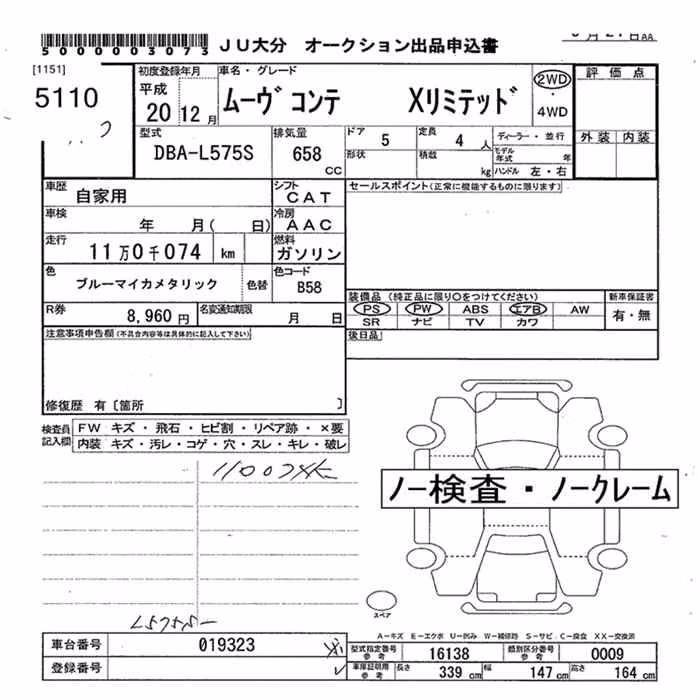 5000003073 JU大分 オークション出品申込書
[1151]
5110
初度登録年月 平成 20 12 月
車名・グレード ムーヴ コンテ Xリミテッド
2WD ・ 4WD
評価点
外装 内装
型式 DBA-L575S
排気量 658 CC
ドア 5
形状
定員 4 人
積載 kg
ディーラー・並行
モデル年式 年
ハンドル 左・右
車歴 自家用
シフト CAT
セールスポイント(正常に機能するものに限ります)
車検 年 月( 日)
冷房 AAC
走行 11万0千074 km
燃料 ガソリン
色 ブルーマイカメタリック 色替
色コード B58
装備品 (純正品に限り○をつけてください)
新車保証書
PS PW ABS エアB AW
有・無
SR ナビ TV カワ
R券 8,960 円
名変通知期限 月 日
注意事項申告欄(不具合内容等は具体的に記入して下さい)
後日品
修復歴 有〔箇所 〕
検査員記入欄
FW キズ・飛石・ヒビ割・リペア跡・×要
内装 キズ・汚レ・コゲ・穴・スレ・キレ・破レ
ノー検査・ノークレーム
スペア
L575S-
A-キズ E-エクボ U-凹み W-補修跡 S-サビ C-腐食 XX-交換済
車台番号 019323
型式指定番号 参考 16138
類別区分番号 参考 0009
登録番号
車庫証明用 参考 長さ 339 cm 幅 147 cm 高さ 164 cm